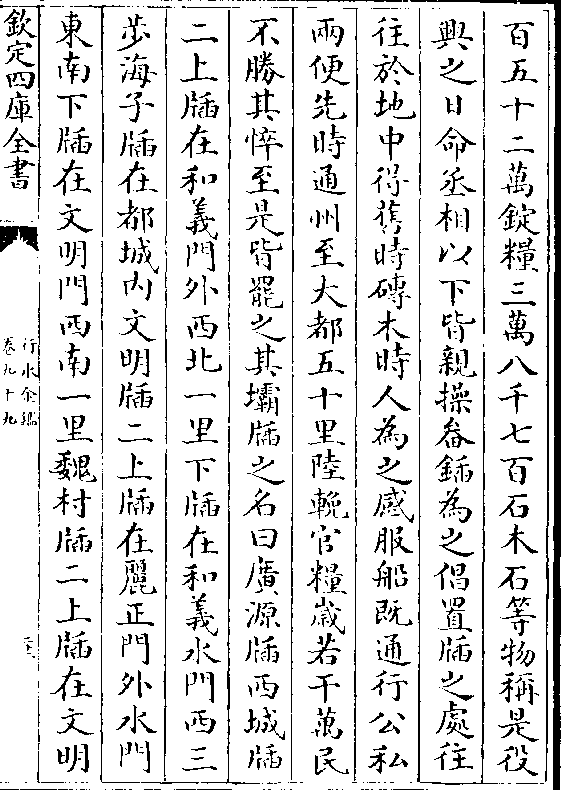 百五十二萬錠糧三萬八千七百石木石等物稱是役
興之日命丞相以下皆親操畚鍤為之倡置牐之處往
往於地中得舊時磚木時人為之感服船既通行公私
兩便先時通州至大都五十里陸輓官糧歲若干萬民
不勝其悴至是皆罷之其壩牐之名曰廣源牐西城牐
二上牐在和義門外西北一里下牐在和義水門西三
步海子牐在都城内文明牐二上牐在麗正門外水門
東南下牐在文明門西南一里魏村牐二上牐在文明
欽定四庫全書
行水金鑑
卷九十九